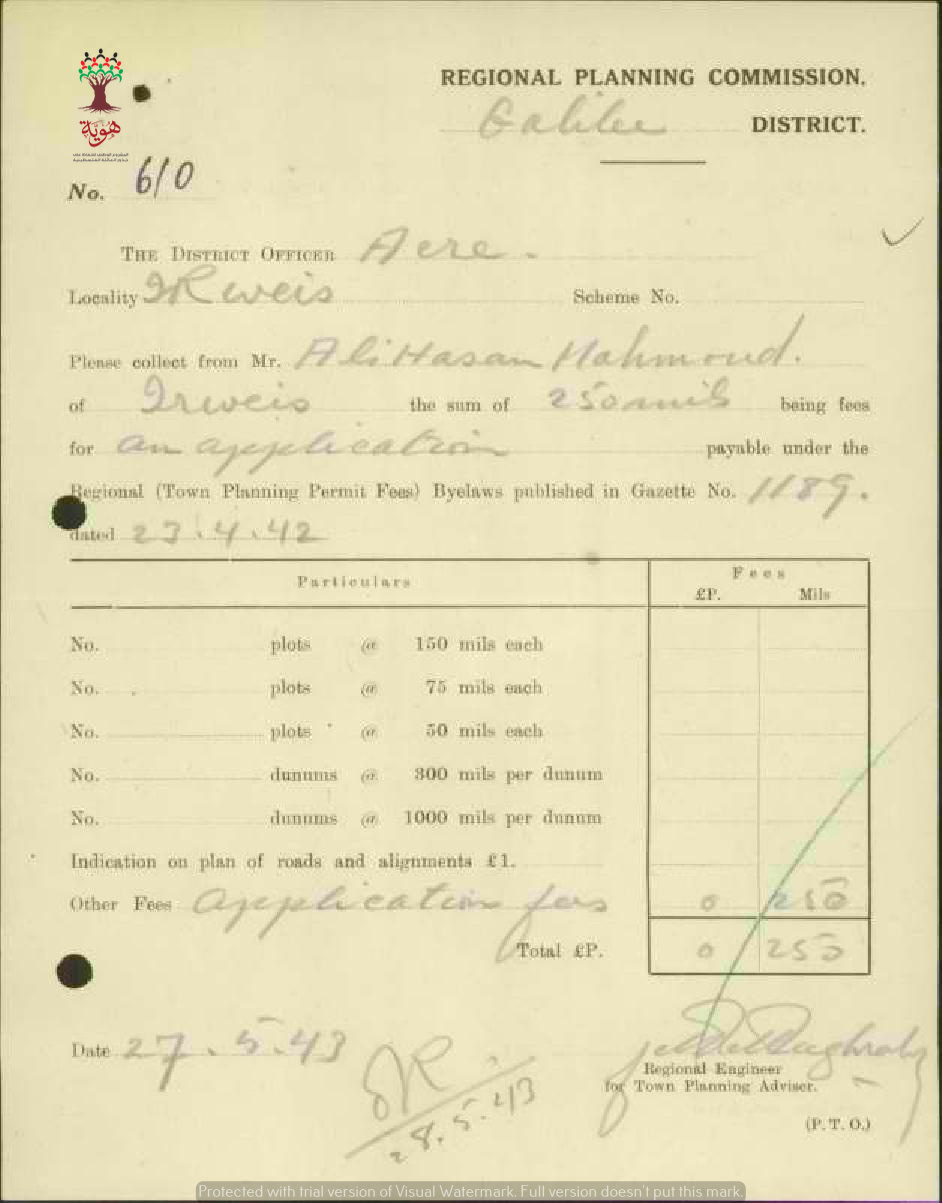 هوية
REGIONAL PLANNING COMMISSION.
Galilee DISTRICT.
No. 610
THE DISTRICT OFFICER Acre.
Locality IRweis Scheme No.
Please collect from Mr. Ali Hasan Mahmoud.
of Irweis the sum of 250 mils being fees
for an application payable under the
Regional (Town Planning Permit Fees) Byelaws published in Gazette No. 1189.
dated 23.4.42
Particulars Fees
£P. Mils
No. plots @ 150 mils each
No. plots @ 75 mils each
No. plots @ 50 mils each
No. dunums @ 300 mils per dunum
No. dunums @ 1000 mils per dunum
Indication on plan of roads and alignments £1.
Other Fees Application fees 0 250
Total £P. 0 250
Date 27.5.43
Regional Engineer
for Town Planning Adviser.
28.5.43
(P. T. O.)
Protected with trial version of Visual Watermark. Full version doesn't put this mark.